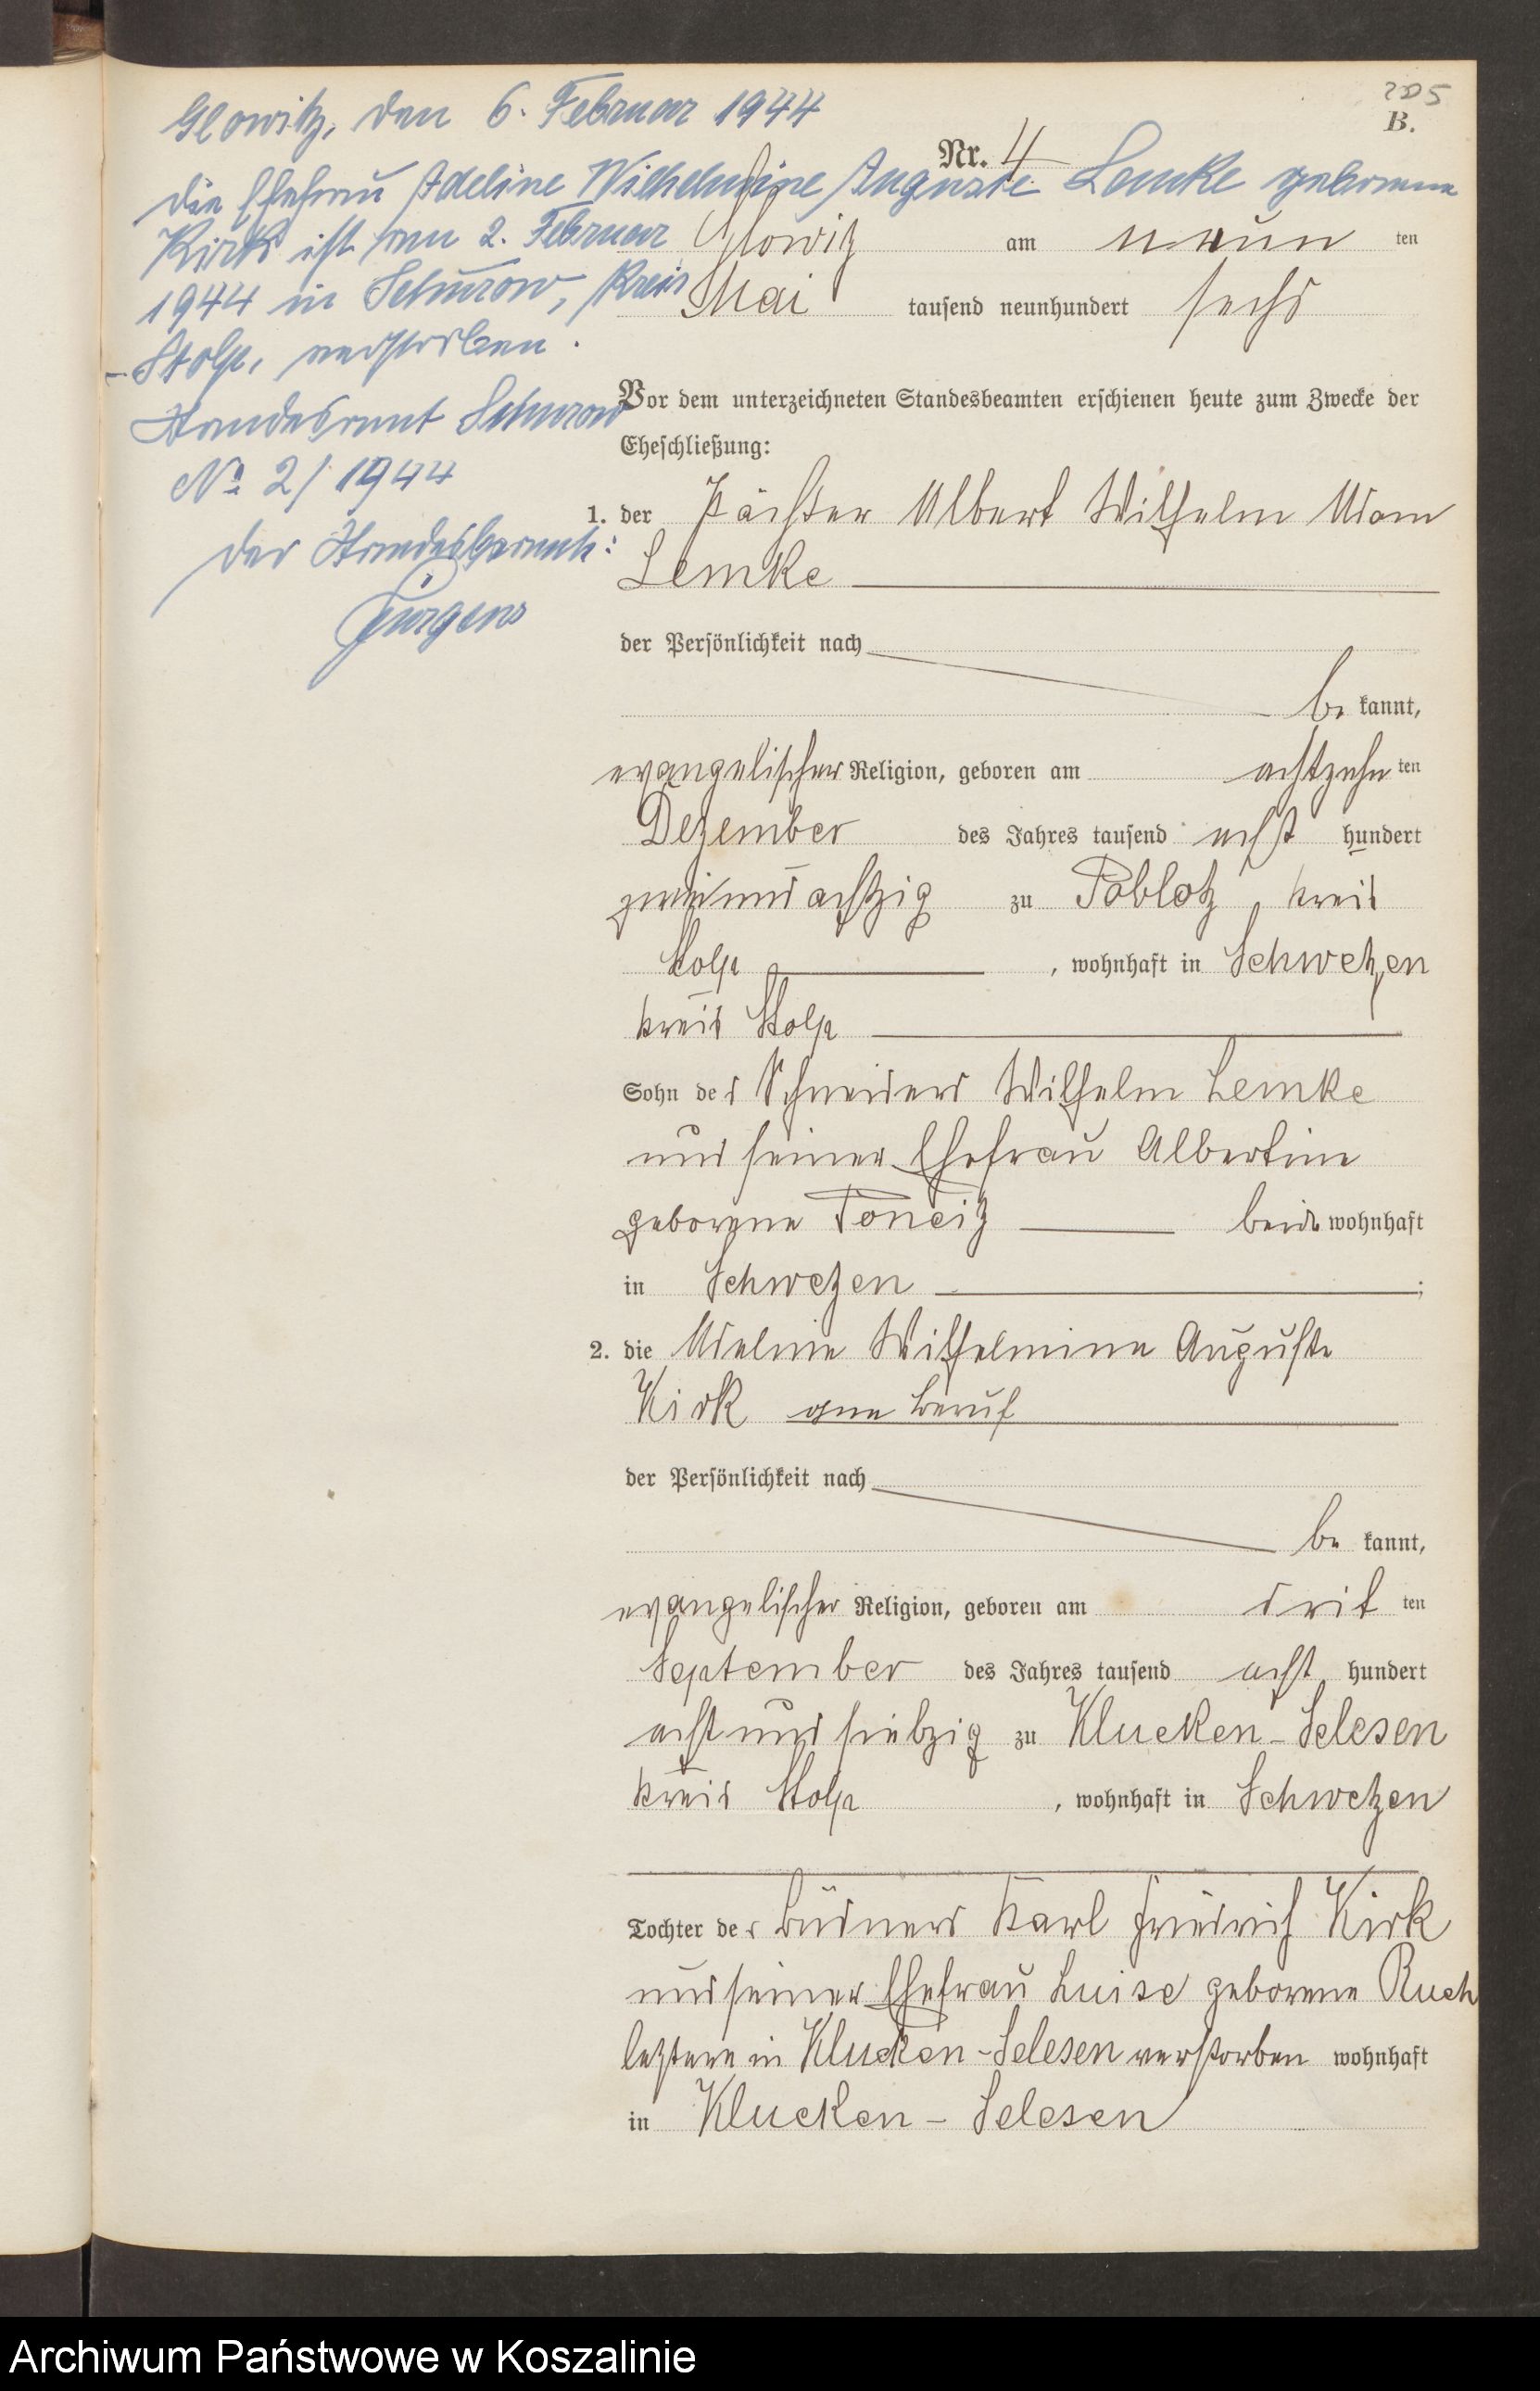 205
B.
Glowitz, den 6. Februar 1944
Nr. 4
Die Ehefrau Adeline Wilhelmine Auguste Lemke geborene
Kirk ist am 2. Februar
1944 in Schurow, Kreis
Stolp, verstorben.
Standesamt Schurow
No 2/1944
Der Standesbeamte:
Jürgens
Glowitz am neun ten
Mai tausend neunhundert sechs
Vor dem unterzeichneten Standesbeamten erschienen heute zum Zwecke der
Eheschließung:
1. der Pächter Albert Wilhelm Adam
Lemke
der Persönlichkeit nach
be kannt,
evangelischer Religion, geboren am achtzehn ten
Dezember des Jahres tausend acht hundert
zweiundachtzig zu Poblotz, Kreis
Stolp, wohnhaft in Schwetzen
Kreis Stolp
Sohn des Schneiders Wilhelm Lemke
und seiner Ehefrau Albertine
geborene beide wohnhaft
in Schwetzen;
2. die Adeline Wilhelmine Auguste
Kirk one Beruf
der Persönlichkeit nach
be kannt,
evangelischer Religion, geboren am drit ten
September des Jahres tausend acht hundert
achtundsiebzig zu Klucken-Selesen
Kreis Stolp, wohnhaft in Schwetzen
Tochter des Büdners Karl Friedrich Kirk
und seiner Ehefrau Luise geborene Ruch
letztere in Klucken-Selesen verstorben wohnhaft
in Klucken-Selesen
Archiwum Państwowe w Koszalinie